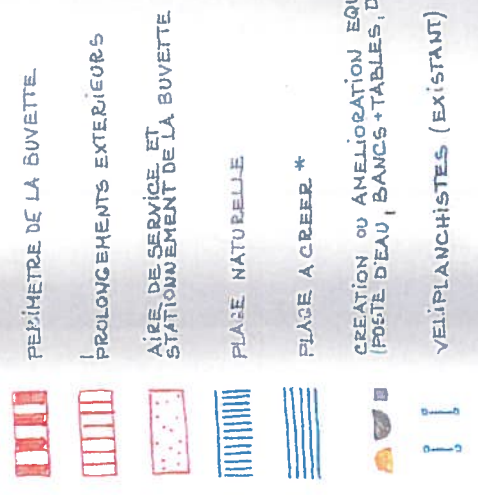 PERIMETRE DE LA BUVETTE
PROLONGEMENTS EXTERIEURS
AIRE DE SERVICE ET
STATIONNEMENT DE LA BUVETTE
PLAGE NATURELLE
PLAGE A CREER *
CREATION OU AMELIORATION
(POSTE D'EAU, BANCS + TABLES,
VELIPLANCHISTES (EXISTANT)